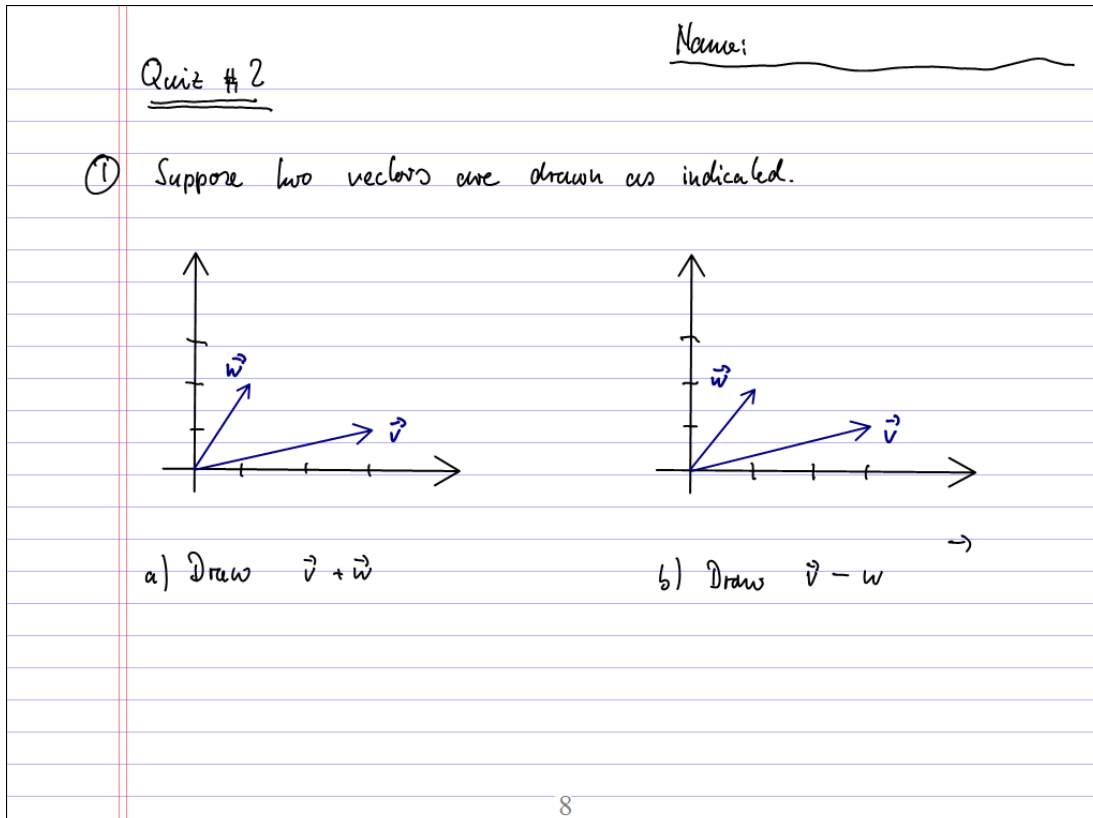 Name:
Quiz # 2
① Suppose two vectors are drawn as indicated.
w⃗ v⃗ w⃗ v⃗
a) Draw v⃗ + w⃗ b) Draw v⃗ - w⃗
8